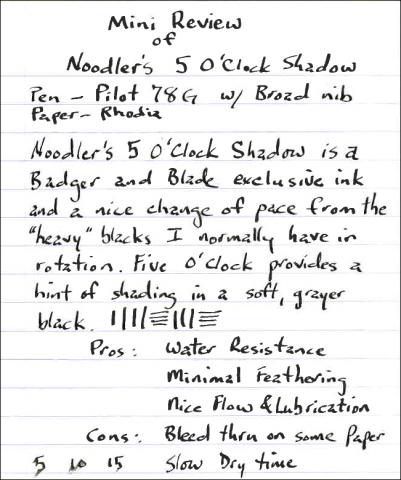 Mini Review
of
Noodler's 5 O'Clock Shadow
Pen - Pilot 78G w/ Broad nib
Paper - Rhodia
Noodler's 5 O'Clock Shadow is a
Badger and Blade exclusive ink
and a nice change of pace from the
"heavy" blacks I normally have in
rotation. Five O'Clock provides a
hint of shading in a soft, grayer
black.
Pros: Water Resistance
Minimal Feathering
Nice Flow & Lubrication
Cons: Bleed thru on some Paper
5 10 15 Slow Dry time